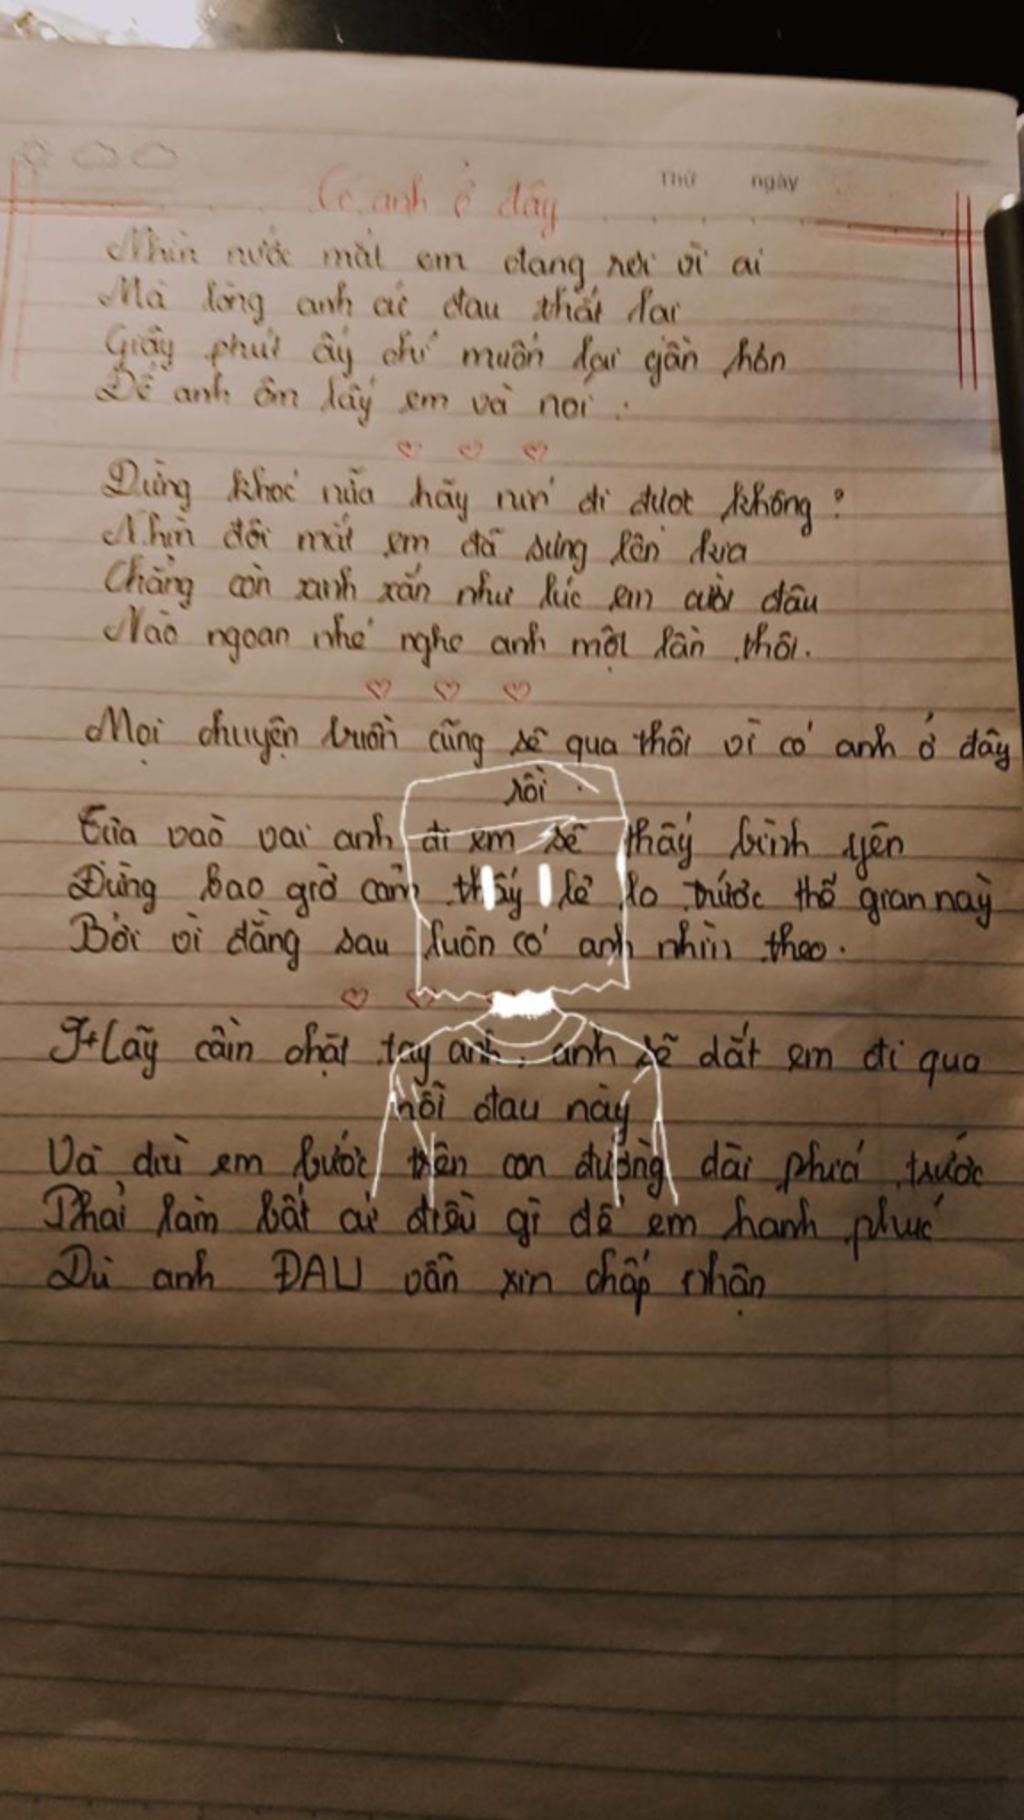 Có anh ở đây
Thứ ngày
Nhìn nước mắt em đang rơi vì ai
Mà lòng anh cứ đau thắt lại
Giây phút ấy chỉ muốn lại gần hơn
Để anh ôm lấy em và nói :
Đừng khóc nữa hãy nín đi được không ?
Nhìn đôi mắt em đã sưng lên kìa
Chẳng còn xinh xắn như lúc em cười đâu
Nào ngoan nhé nghe anh một lần thôi.
Mọi chuyện buồn cũng sẽ qua thôi vì có anh ở đây
rồi .
Tựa vào vai anh đi em sẽ thấy bình yên
Đừng bao giờ cảm thấy lẻ loi trước thế gian này
Bởi vì đằng sau luôn có anh nhìn theo.
Hãy cầm chặt tay anh, anh sẽ dắt em đi qua
nỗi đau này
Và dù em bước trên con đường dài phía trước
Phải làm bất cứ điều gì để em hạnh phúc
Dù anh ĐAU vẫn xin chấp nhận